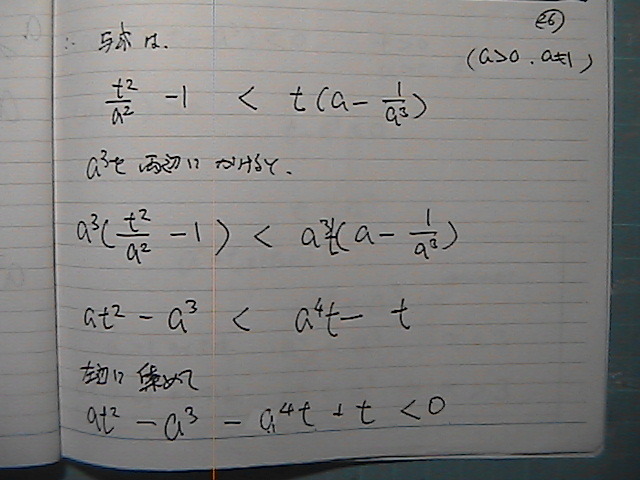 ㉖
∴ 与式は、
(a>0, a≠1)
t²/a² - 1 < t(a - 1/a³)
a³を両辺にかけると、
a³(t²/a² - 1) < a³t(a - 1/a³)
at² - a³ < a⁴t - t
左辺に集めて
at² - a³ - a⁴t + t < 0